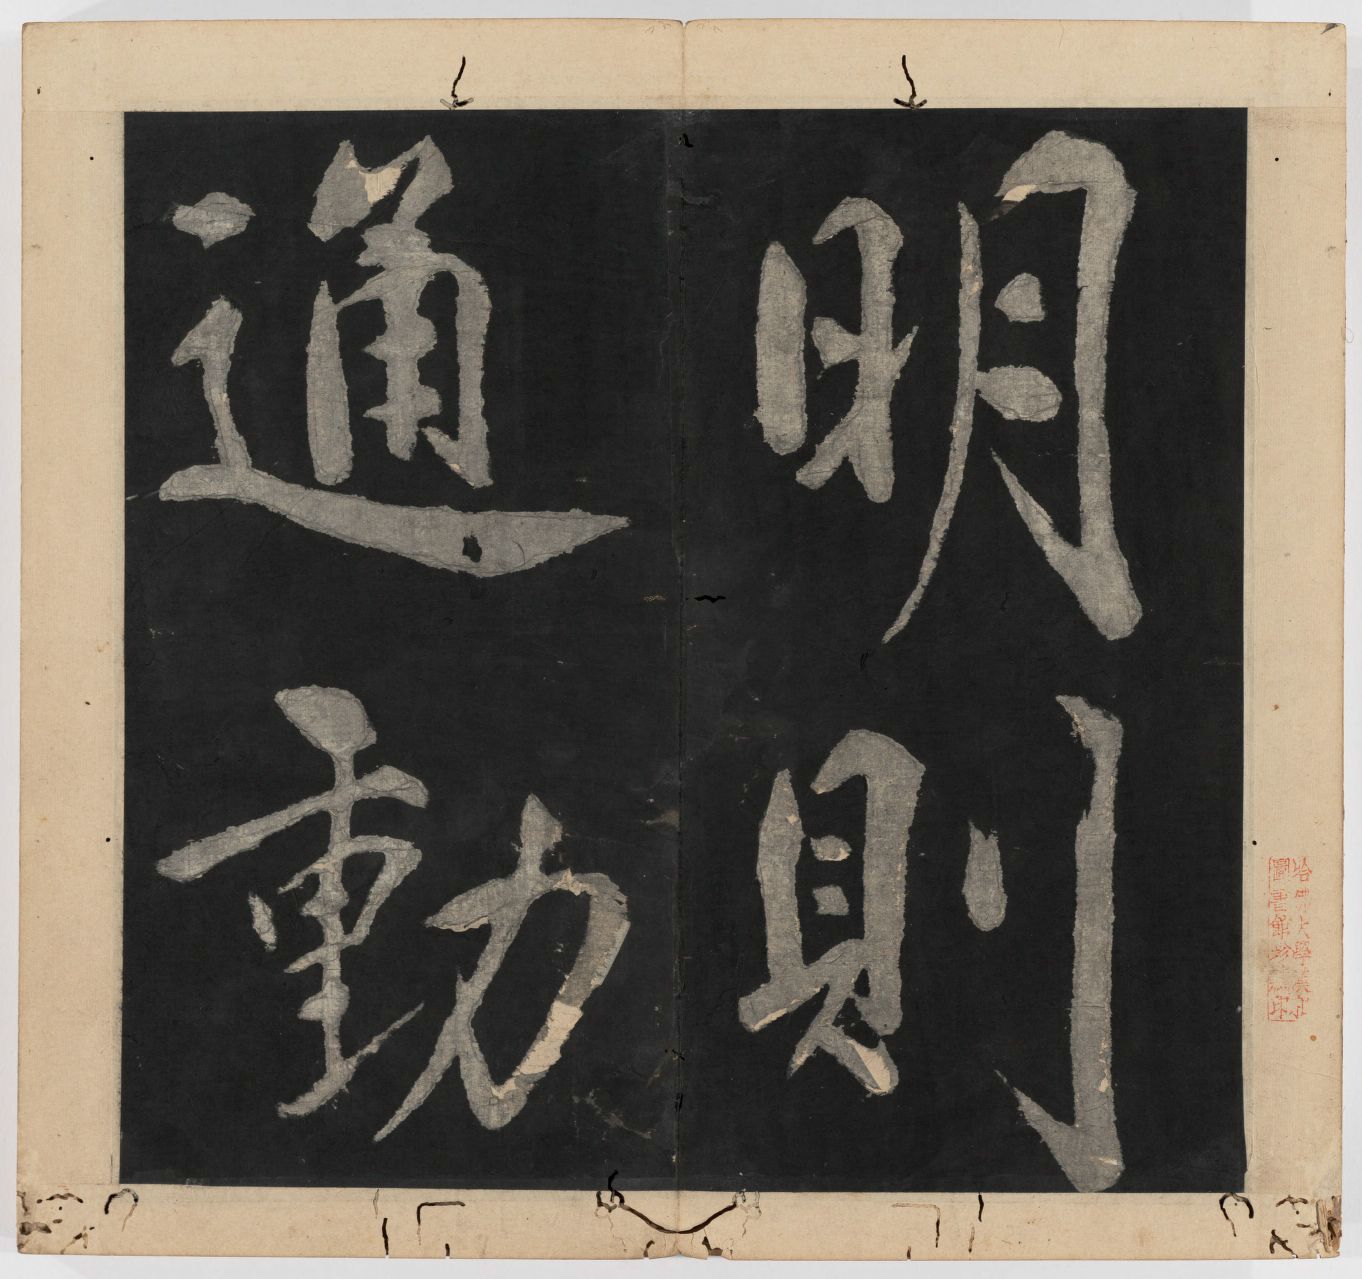 明則
通動
哈佛大學漢和
圖書館珍藏印